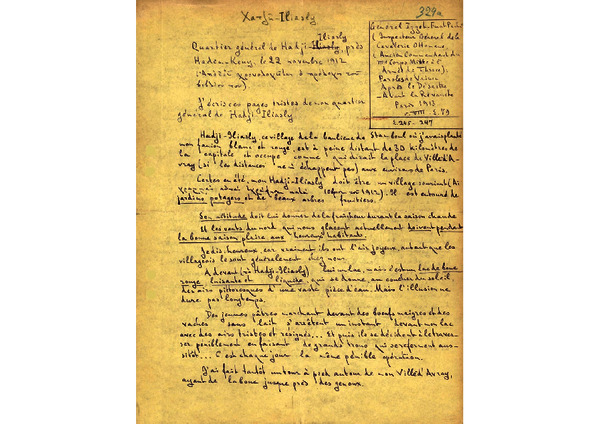 Χατζῆ-Iliasly
329a
Général Izzet-Fuat Pacha
(Inspecteur Général de la
Cavalerie Ottomane
(Ancien Commandant du
Corps Mixte
Armée de Thrace).
Paroles de Vaincu
Après le Désastre
-Avant la Revanche
Paris 1913
Σ. 79
Σ. 245-247
Iliasly
Quartier général de Hadji-, près
Hadem-Keuy, le 22 novembre 1912
J'écris ces pages tristes de mon quartier
général de Hadji-Iliasly
Hadji-Iliasly, ce village de la banlieue de Stamboul où j'avais planté
mon fanion blanc et rouge, est à peine distant de 30 kilomètres de
la capitale et occupe comme qui dirait la place de Ville d'A-
vray (si les distances ne m'échappent pas) aux environs de Paris.
Certes en été, mon Hadji-Iliasly doit être un village souriant
1912). Il est entouré de
jardins potagers et de beaux arbres fruitiers.
Son altitude doit lui donner de la fraîcheur durant la saison chaude
Et les vents du nord, qui nous glacent actuellement doivent pendant
la bonne saison plaire aux heureux habitants.
Je dis heureux, car vraiment ils ont l'air joyeux autant que les
villageois le sont généralement chez nous.
A devant Hadji-Iliasly) lui un lac, mais c'est un lac de boue
rouge luisante et liquide, qui se donne, au coucher du soleil
des airs pittoresques d'une vaste pièce d'eau. Mais l'illusion ne
dure pas longtemps.
Des jeunes pâtres marchant devant des boeufs maigres et des
vaches sans lait s'arrêtent un instant devant mon lac
avec des airs tristes et résignés... Et puis ils se décident à le traver-
ser péniblement en faisant de grands trous qui se referment aus-
sitôt... C'est chaque jour la même pénible opération.
J'ai fait tantôt un tour à pied autour de mon Ville d'Avray,
ayant de la boue jusque près des genoux.